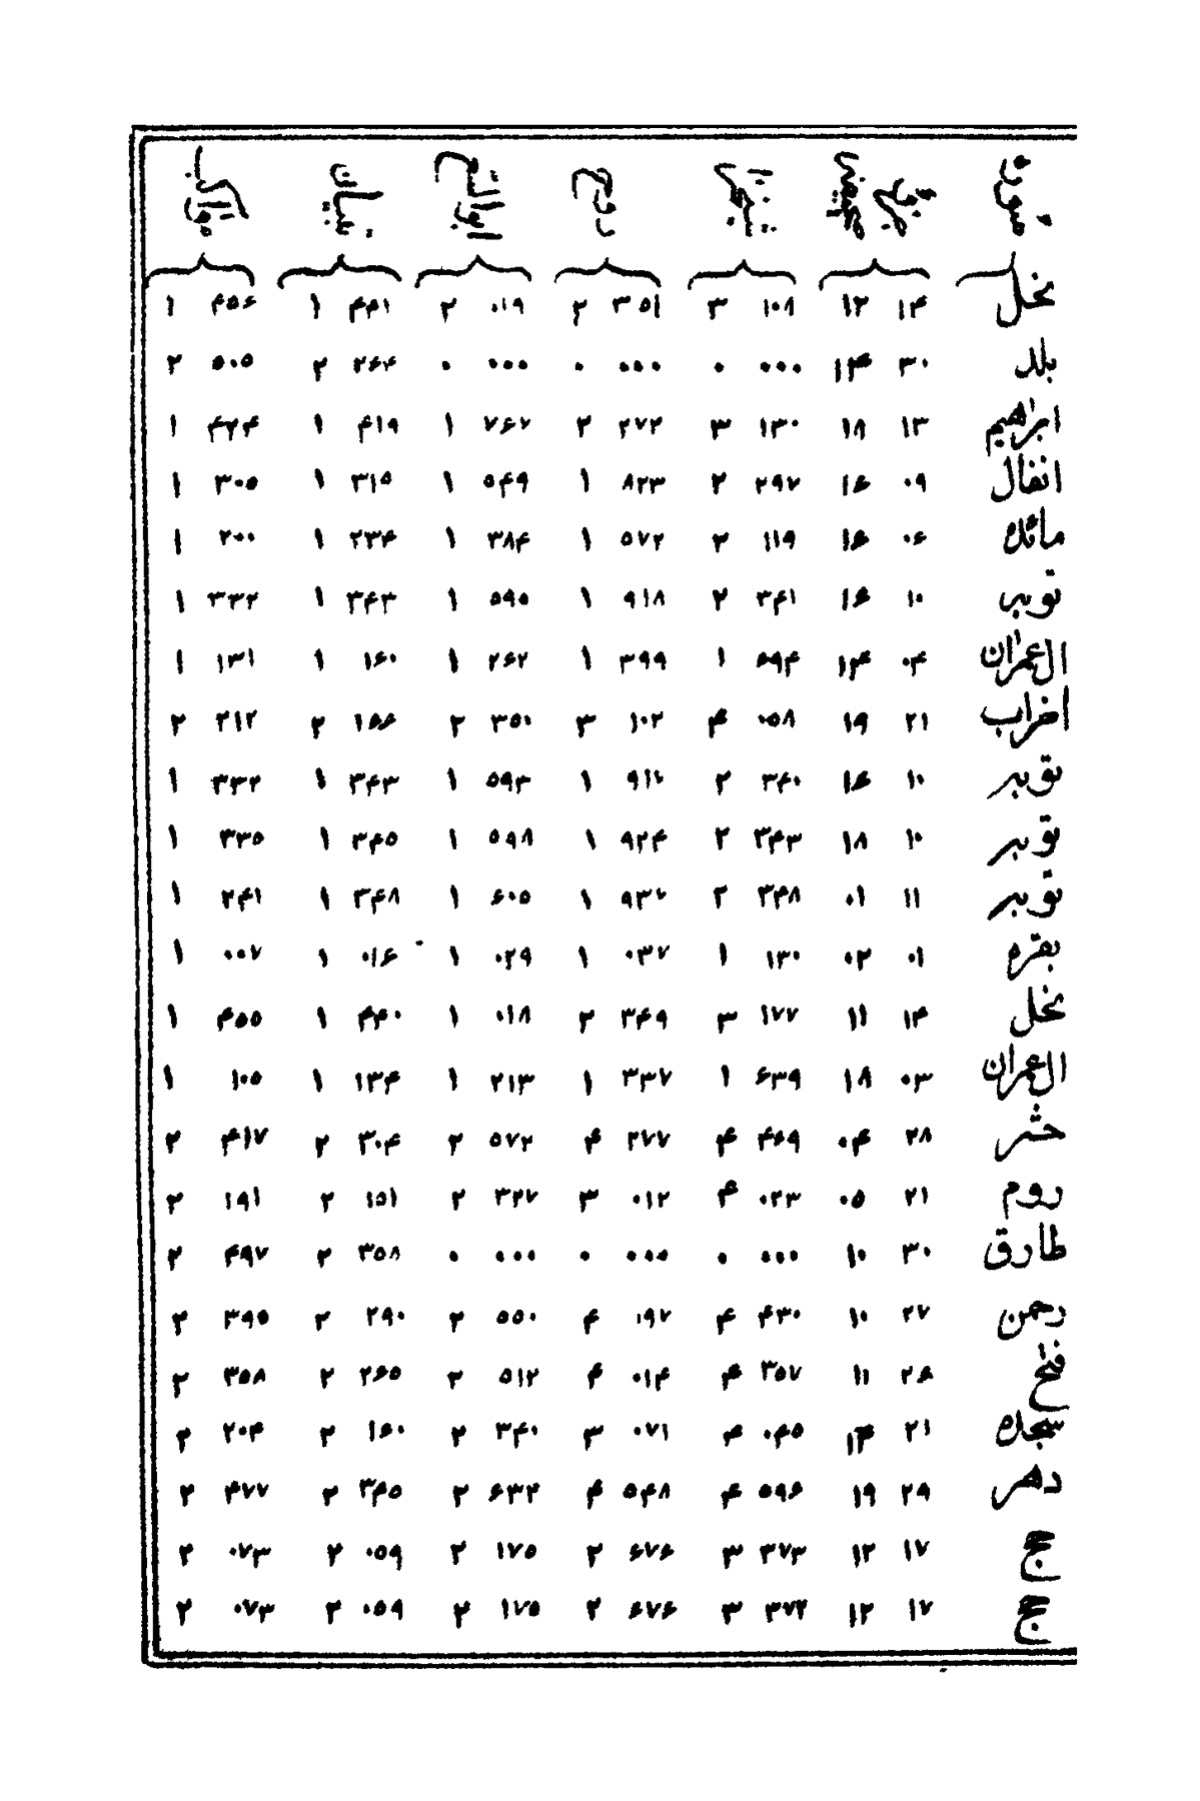 نحل ۱۴ ۱۲ ۱۰۸ ۳ ۳۵۱ ۲ ۰۱۹ ۲ ۴۴۱ ۱ ۴۵۶ ۱
بلد ۳۰ ۱۴ ۰۰۰ ۰ ۰۰۰ ۰ ۰۰۰ ۰ ۲۶۴ ۲ ۵۰۵ ۲
ابراهیم ۱۳ ۱۸ ۱۳۰ ۳ ۲۷۲ ۲ ۷۶۷ ۱ ۴۱۹ ۱ ۴۲۴ ۱
انفال ۰۹ ۱۶ ۲۹۷ ۲ ۸۲۳ ۱ ۵۴۹ ۱ ۳۱۵ ۱ ۳۰۵ ۱
مائده ۰۶ ۱۶ ۱۱۹ ۲ ۵۷۲ ۱ ۳۸۴ ۱ ۲۳۴ ۱ ۲۰۰ ۱
توبه ۱۰ ۱۶ ۳۴۱ ۲ ۹۱۸ ۱ ۵۹۵ ۱ ۳۴۳ ۱ ۳۳۲ ۱
ال عمران ۰۴ ۱۴ ۶۹۴ ۱ ۳۹۹ ۱ ۲۶۲ ۱ ۱۶۰ ۱ ۱۳۱ ۱
احزاب ۲۱ ۱۹ ۰۵۸ ۴ ۱۰۲ ۳ ۳۵۰ ۲ ۱۶۶ ۲ ۲۱۲ ۲
توبه ۱۰ ۱۶ ۳۴۰ ۲ ۹۱۷ ۱ ۵۹۳ ۱ ۳۴۳ ۱ ۳۳۲ ۱
توبه ۱۰ ۱۸ ۳۴۳ ۲ ۹۲۴ ۱ ۵۹۸ ۱ ۳۴۵ ۱ ۳۳۵ ۱
توبه ۱۱ ۰۱ ۳۴۸ ۲ ۹۳۲ ۱ ۶۰۵ ۱ ۳۴۸ ۱ ۲۴۱ ۱
بقره ۰۱ ۰۲ ۱۳۰ ۱ ۰۳۷ ۱ ۰۲۹ ۱ ۰۱۶ ۱ ۰۰۷ ۱
نحل ۱۴ ۱۱ ۱۷۷ ۳ ۳۴۹ ۲ ۰۱۸ ۱ ۴۴۰ ۱ ۴۵۵ ۱
ال عمران ۰۳ ۱۸ ۶۳۹ ۱ ۳۳۷ ۱ ۲۱۳ ۱ ۱۳۴ ۱ ۱۰۵ ۱
حشر ۲۸ ۰۴ ۴۶۹ ۴ ۲۷۷ ۴ ۵۷۲ ۲ ۳۰۴ ۲ ۴۱۷ ۲
روم ۲۱ ۰۵ ۰۲۳ ۴ ۰۱۲ ۳ ۳۲۷ ۲ ۱۵۱ ۲ ۱۹۱ ۲
طارق ۳۰ ۱۰ ۰۰۰ ۰ ۰۰۰ ۰ ۰۰۰ ۰ ۳۵۸ ۲ ۴۹۷ ۲
رحمن ۲۷ ۱۰ ۴۳۰ ۴ ۱۹۷ ۴ ۵۵۰ ۲ ۲۹۰ ۲ ۳۹۵ ۲
فتح ۲۶ ۱۱ ۳۵۷ ۴ ۰۱۴ ۴ ۵۱۲ ۲ ۲۶۵ ۲ ۳۵۸ ۲
سجده ۲۱ ۱۴ ۰۴۵ ۴ ۰۷۱ ۳ ۳۴۰ ۲ ۱۶۰ ۲ ۲۰۴ ۲
دهر ۲۹ ۱۹ ۵۹۶ ۴ ۵۴۸ ۴ ۶۳۲ ۲ ۳۴۵ ۲ ۴۷۷ ۲
حج ۱۷ ۱۲ ۳۷۳ ۳ ۶۷۶ ۲ ۱۷۵ ۲ ۰۵۹ ۲ ۰۷۳ ۲
حج ۱۷ ۱۲ ۳۷۲ ۳ ۶۷۶ ۲ ۱۷۵ ۲ ۰۵۹ ۲ ۰۷۳ ۲